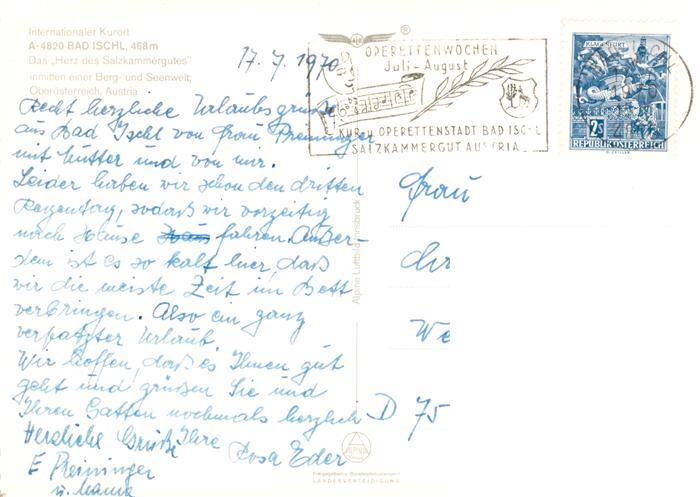 Internationaler Kurort
A-4820 BAD ISCHL, 468m
Das „Herz des Salzkammergutes"
inmitten einer Berg- und Seenwelt;
Oberösterreich, Austria
17. 7. 1970
Recht herzliche Urlaubsgrüße
aus Bad Ischl von Frau Preininger
mit Mutter und von mir.
Leider haben wir schon den dritten
Regentag, sodaß wir vorzeitig
nach Hause fahren. Außer-
dem ist es so kalt hier, daß
wir die meiste Zeit im Bett
verbringen. Also ein ganz
verpatzter Urlaub.
Wir hoffen, daß es Ihnen gut
geht und grüßen Sie und
Ihren Gatten nochmals herzlich
Ihre
Rosa Eder
Herzliche Grüße
E Preininger
u. Mama
OPERETTENWOCHEN
Juli - August
KUR- u. OPERETTENSTADT BAD ISCHL
SALZKAMMERGUT AUSTRIA
KLAGENFURT
2S
REPUBLIK ÖSTERREICH
Frau
We
D 75
Alpine Luftbild Innsbruck
ALPINA
Freigegeben v. Bundesministerium f.
LANDESVERTEIDIGUNG